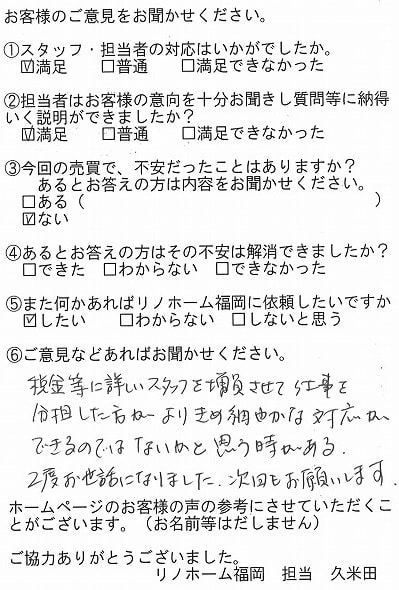 お客様のご意見をお聞かせください。
①スタッフ・担当者の対応はいかがでしたか。
☑満足 □普通 □満足できなかった
②担当者はお客様の意向を十分お聞きし質問等に納得
いく説明ができましたか？
☑満足 □普通 □満足できなかった
③今回の売買で、不安だったことはありますか？
あるとお答えの方は内容をお聞かせください。
□ある（ ）
☑ない
④あるとお答えの方はその不安は解消できましたか？
□できた □わからない □できなかった
⑤また何かあればリノホーム福岡に依頼したいですか
☑したい □わからない □しないと思う
⑥ご意見などあればお聞かせください。
税金等に詳しいスタッフを増員させて仕事を
分担した方がよりきめ細やかな対応が
できるのではないかと思う時がある.
2度お世話になりました. 次回もお願いします.
ホームページのお客様の声の参考にさせていただくこ
とがございます。（お名前等はだしません）
ご協力ありがとうございました。
リノホーム福岡 担当 久米田